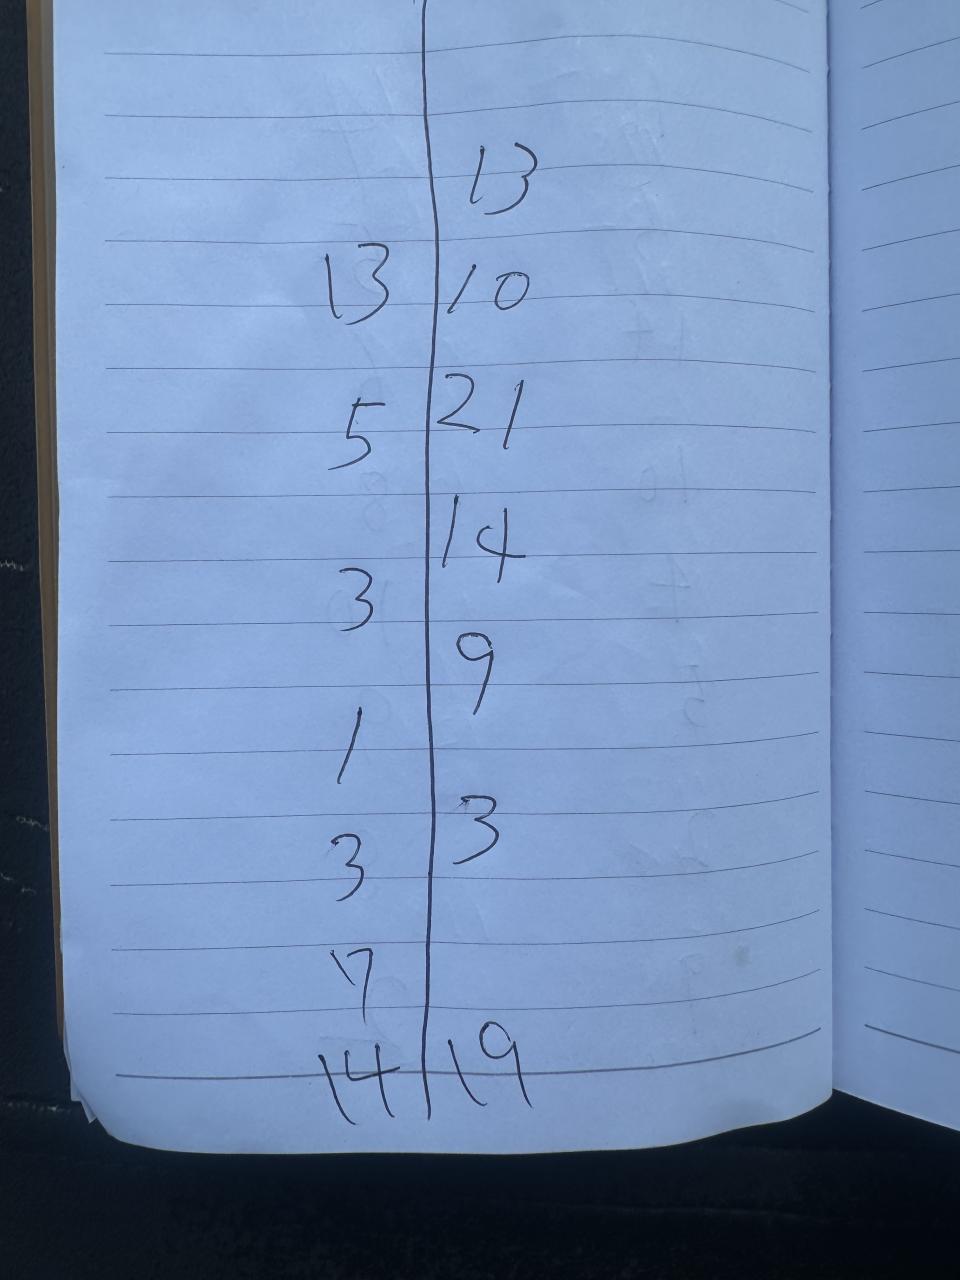 13
13 10
5 21
14
3
9
1
3
3
7
14 19